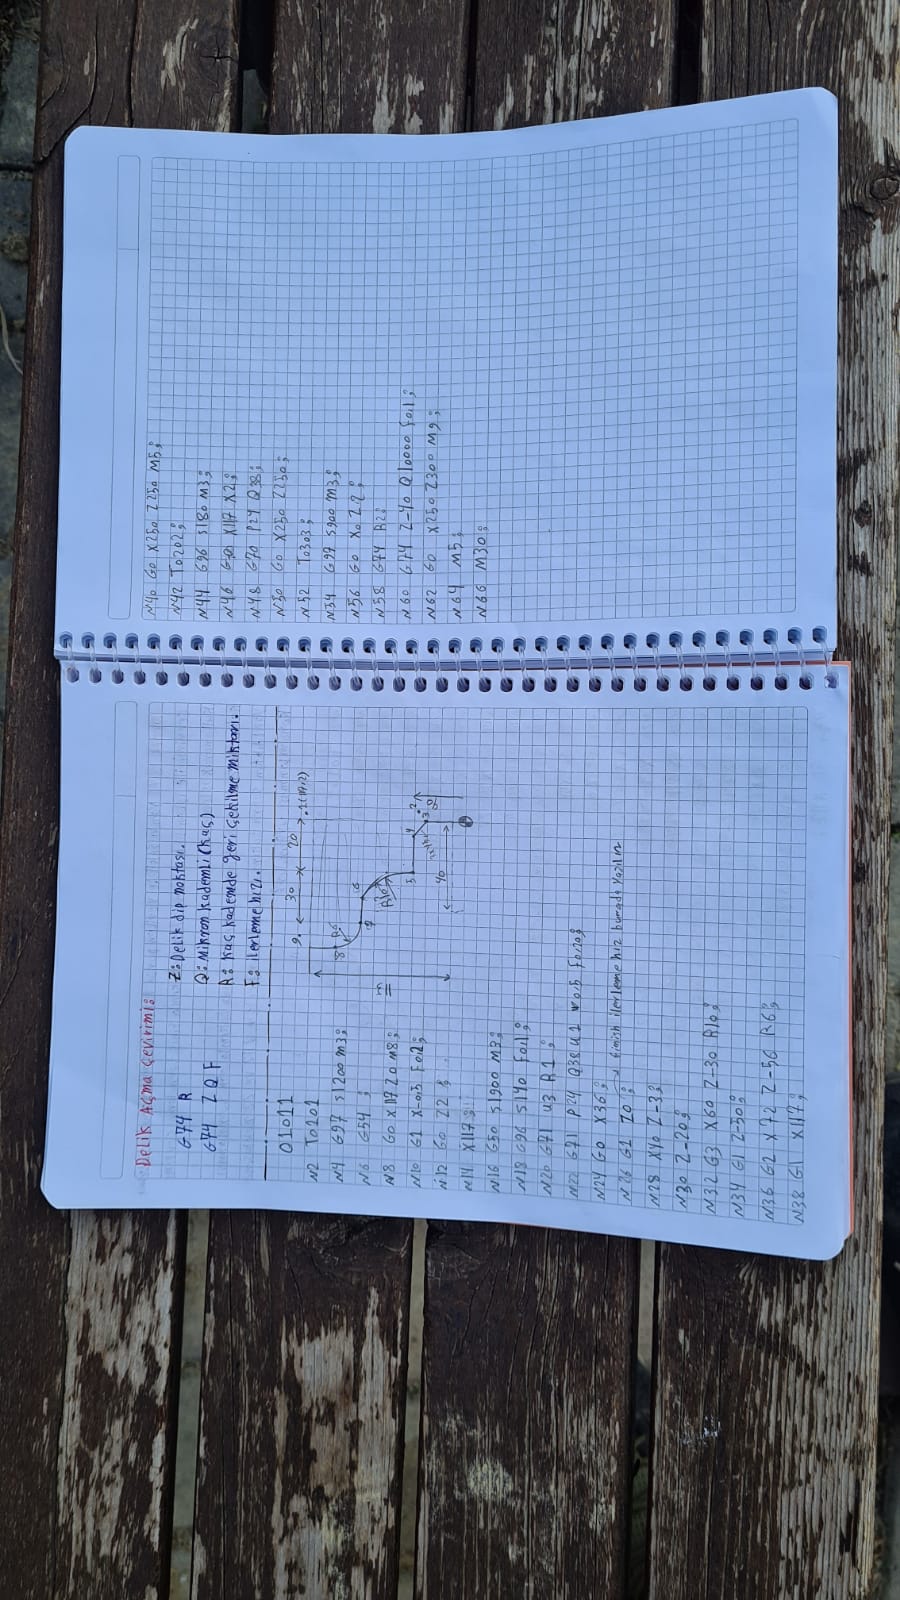 Delik Açma Çevirimi:
G74 R
G74 Z Q F
Z: Delik dip noktası.
Q: Mikron kademli (kaç)
R: Kaç kademde geri çekilme miktarı.
F: ilerleme hızı.
O1011
N2 T0101
N4 G97 S1200 M3;
N6 G54 ;
N8 G0 X117 Z0 M8;
N10 G1 X-0,5 F0,2;
N12 G0 Z2 ;
N14 X117 ;
N16 G50 S1900 M3;
N18 G96 S140 F0,1;
N20 G71 U3 R1 ;
N22 G71 P24 Q38 U1 W0,5 F0,20;
N24 G0 X36;
N26 G1 Z0 ; → finish ilerleme hız burada yazılır
N28 X40 Z-3;
N30 Z-20;
N32 G3 X60 Z-30 R10;
N34 G1 Z-50;
N36 G2 X72 Z-56 R6;
N38 G1 X117;
9. 30 20 .1(117,2)
8 R6
7 6
R10
5 4 .2
3
40
N40 G0 X250 Z250 M5;
N42 T0202;
N44 G96 S180 M3;
N46 G0 X117 X2;
N48 G70 P24 Q38;
N50 G0 X250 Z250;
N52 T0303;
N54 G97 S900 M3;
N56 G0 X0 Z2;
N58 G74 R2;
N60 G74 Z-40 Q10000 F0,1;
N62 G0 X250 Z300 M9;
N64 M5;
N66 M30;